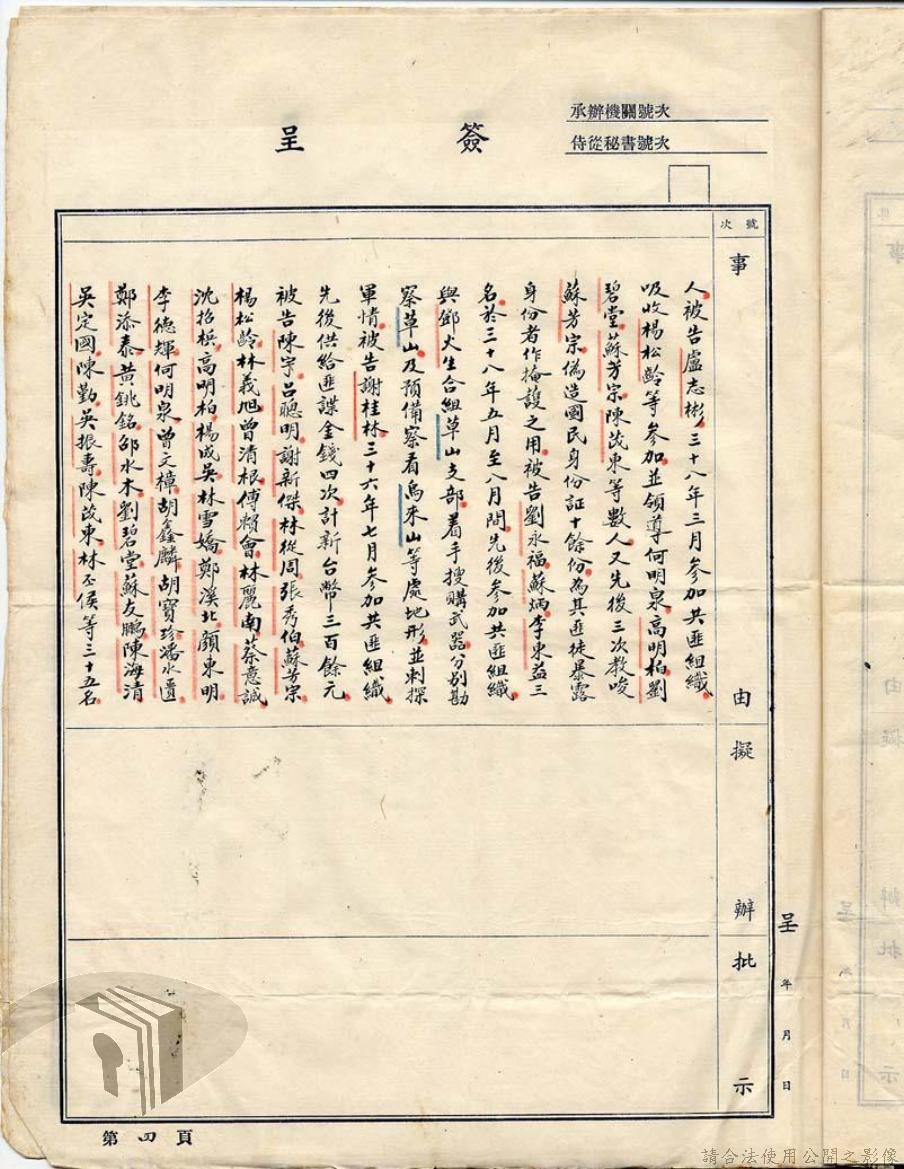 承辦機關號次
侍從秘書號次
簽呈
號次
事由
擬辦
批示
人被告盧志彬三十八年三月參加共匪組織
吸收楊松齡等參加並領導何明泉高明柏劉
碧堂蘇芳宗陳茂東等數人又先後三次教唆
蘇芳宗偽造國民身份証十餘份為其匪徒暴露
身份者作掩護之用被告劉永福蘇炳李東益三
名於三十八年五月至八月間先後參加共匪組織
與鄧火生合組草山支部着手搜購武器分別勘
察草山及預備察看烏來山等處地形並刺探
軍情被告謝桂林三十六年七月參加共匪組織
先後供給匪諜金錢四次計新台幣三百餘元
被告陳宇呂聰明謝新傑林從周張秀伯蘇芳宗
楊松齡林義旭曾清根傅賴會林麗南蔡意誠
沈招槟高明柏楊成吳林雪嬌鄭溪北顏東明
李德輝何明泉曾文樟胡鑫麟胡寶珍潘水匱
鄭添泰黃銚銘邵水木劉碧堂蘇友鵬陳海清
吳定國陳勤吳振壽陳茂東林丕侯等三十五名
呈 年 月 日
第四頁
請合法使用公開之影像